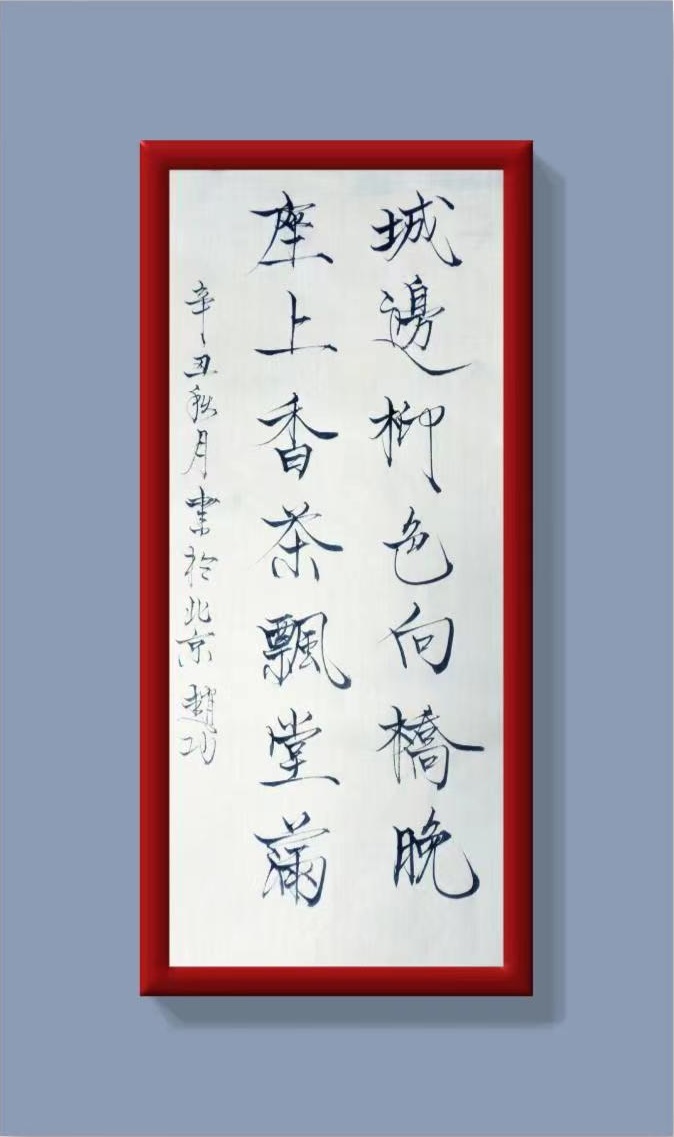 城邊柳色向橋晚
座上香茶飄堂滿
辛丑秋月書於北京趙功